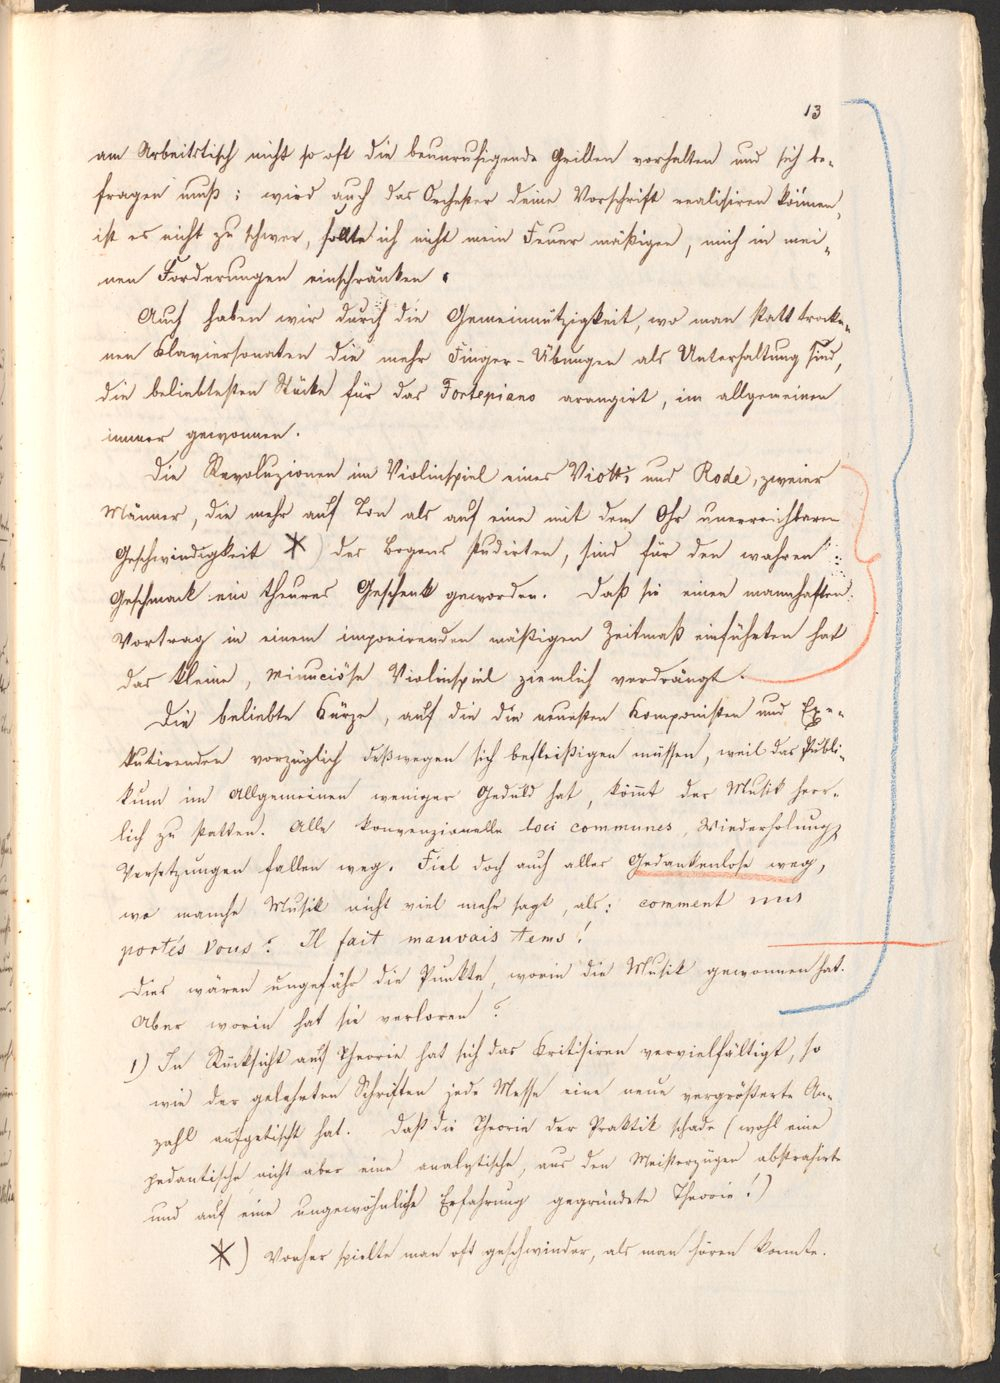 13
am Arbeitstisch nicht so oft die beunruhigende Grillen vorhalten und sich be-
fragen muß: wird auch das Orchester deine Vorschrift realisiren können,
ist es nicht zu schwer, sollte ich nicht mein Feuer mäßigen, mich in mei-
nen Forderungen einschränken.
Auch haben wir durch die Gemeinnützigkeit, wo man statt trocke-
nen Klaviersonaten die mehr Finger-Übungen als Unterhaltung sind,
die beliebtesten Stücke für das Fortepiano arangirt, im allgemeinen
immer gewonnen.
Die Revoluzionen im Violinspiel eines Viotti und Rode, zweier
Männer, die mehr auf Ton als auf eine mit dem Ohr unerreichbaren
Geschwindigkeit *) des Bogens studirten, sind für den wahren
Geschmack ein theures Geschenk geworden. Daß sie einen mannhaften
Vortrag in einem imponirenden mäßigen Zeitmaß einführten hat
das kleine, minuciöse Violinspiel ziemlich verdrängt.
Die beliebte Kürze, auf die die neuesten Komponisten und Exe-
kutirenden vorzüglich deßwegen sich befleißigen müssen, weil das Publi-
kum im Allgemeinen weniger Geduld hat, kömt der Musik herr-
lich zu statten. Alle konvenzionelle loci communes, Wiederholung,
Versetzungen fallen weg. Fiel doch auch alles Gedankenlose weg,
wo manche Musik nicht viel mehr sagt, als: comment
portés vous? Il fait mauvais tems!
Dies wären ungefähr die Punkte, worin die Musik gewonnen hat.
Aber worin hat sie verloren?
1) In Rücksicht auf Theorie hat sich das Kritisiren vervielfältigt, so
wie der gelehrten Schriften jede Messe eine neue vergrößerte An-
zahl aufgetischt hat. Daß die Theorie der Praktik schade (wohl eine
pedantische, nicht aber eine analytische, aus den Meisterzügen abstrahirte
und auf eine ungewöhnliche Erfahrung gegründete Theorie!)
*) Vorher spielte man oft geschwinder, als man hören konnte.